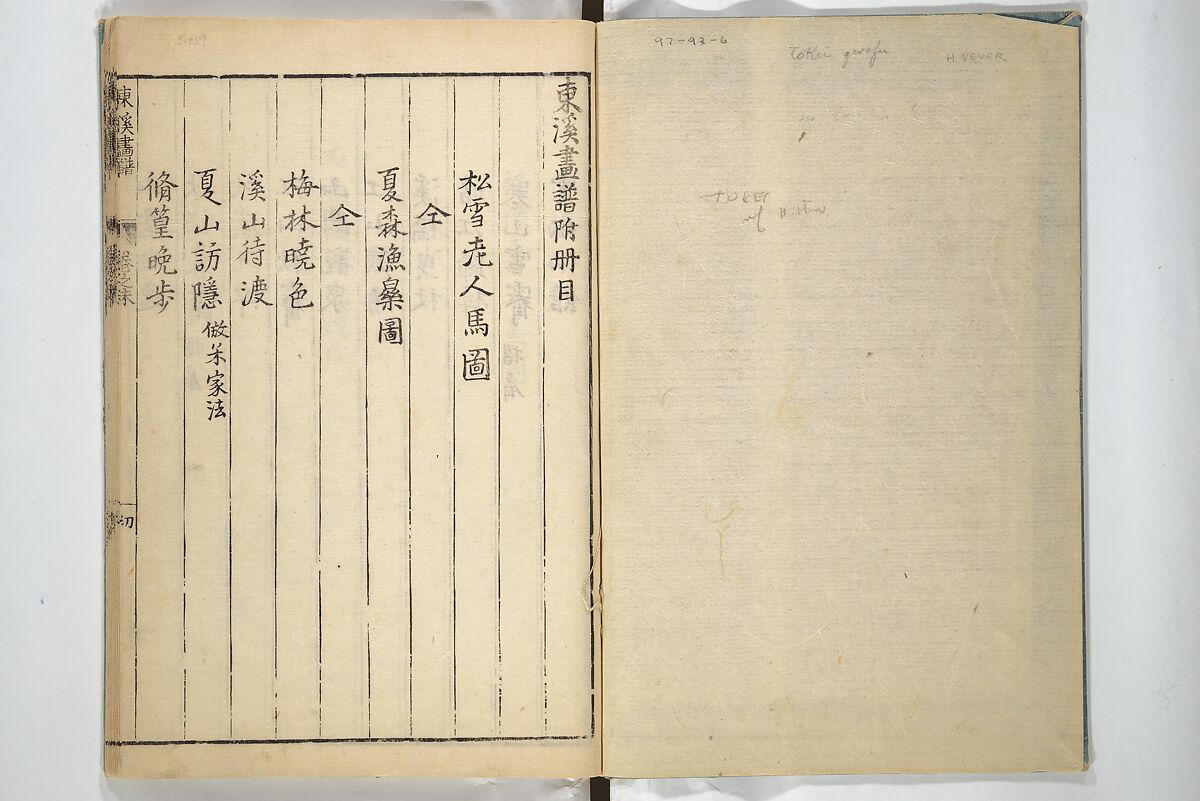 97-93-6
Tokei gwafu
H VEVER
TOKEI
東溪畫譜附册目
松雪老人馬圖
仝
夏森漁㚖圖
仝
梅林曉色
溪山待渡
夏山訪隱 倣米家法
脩篁晩步
東溪畫譜
卷之末
初